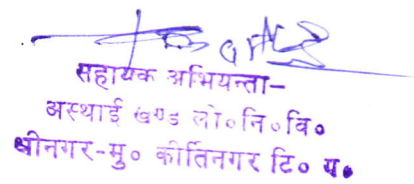 सहायक अभियन्ता-
अस्थाई खण्ड लो०नि०वि०
श्रीनगर-मु० कीर्तिनगर टि० ग०